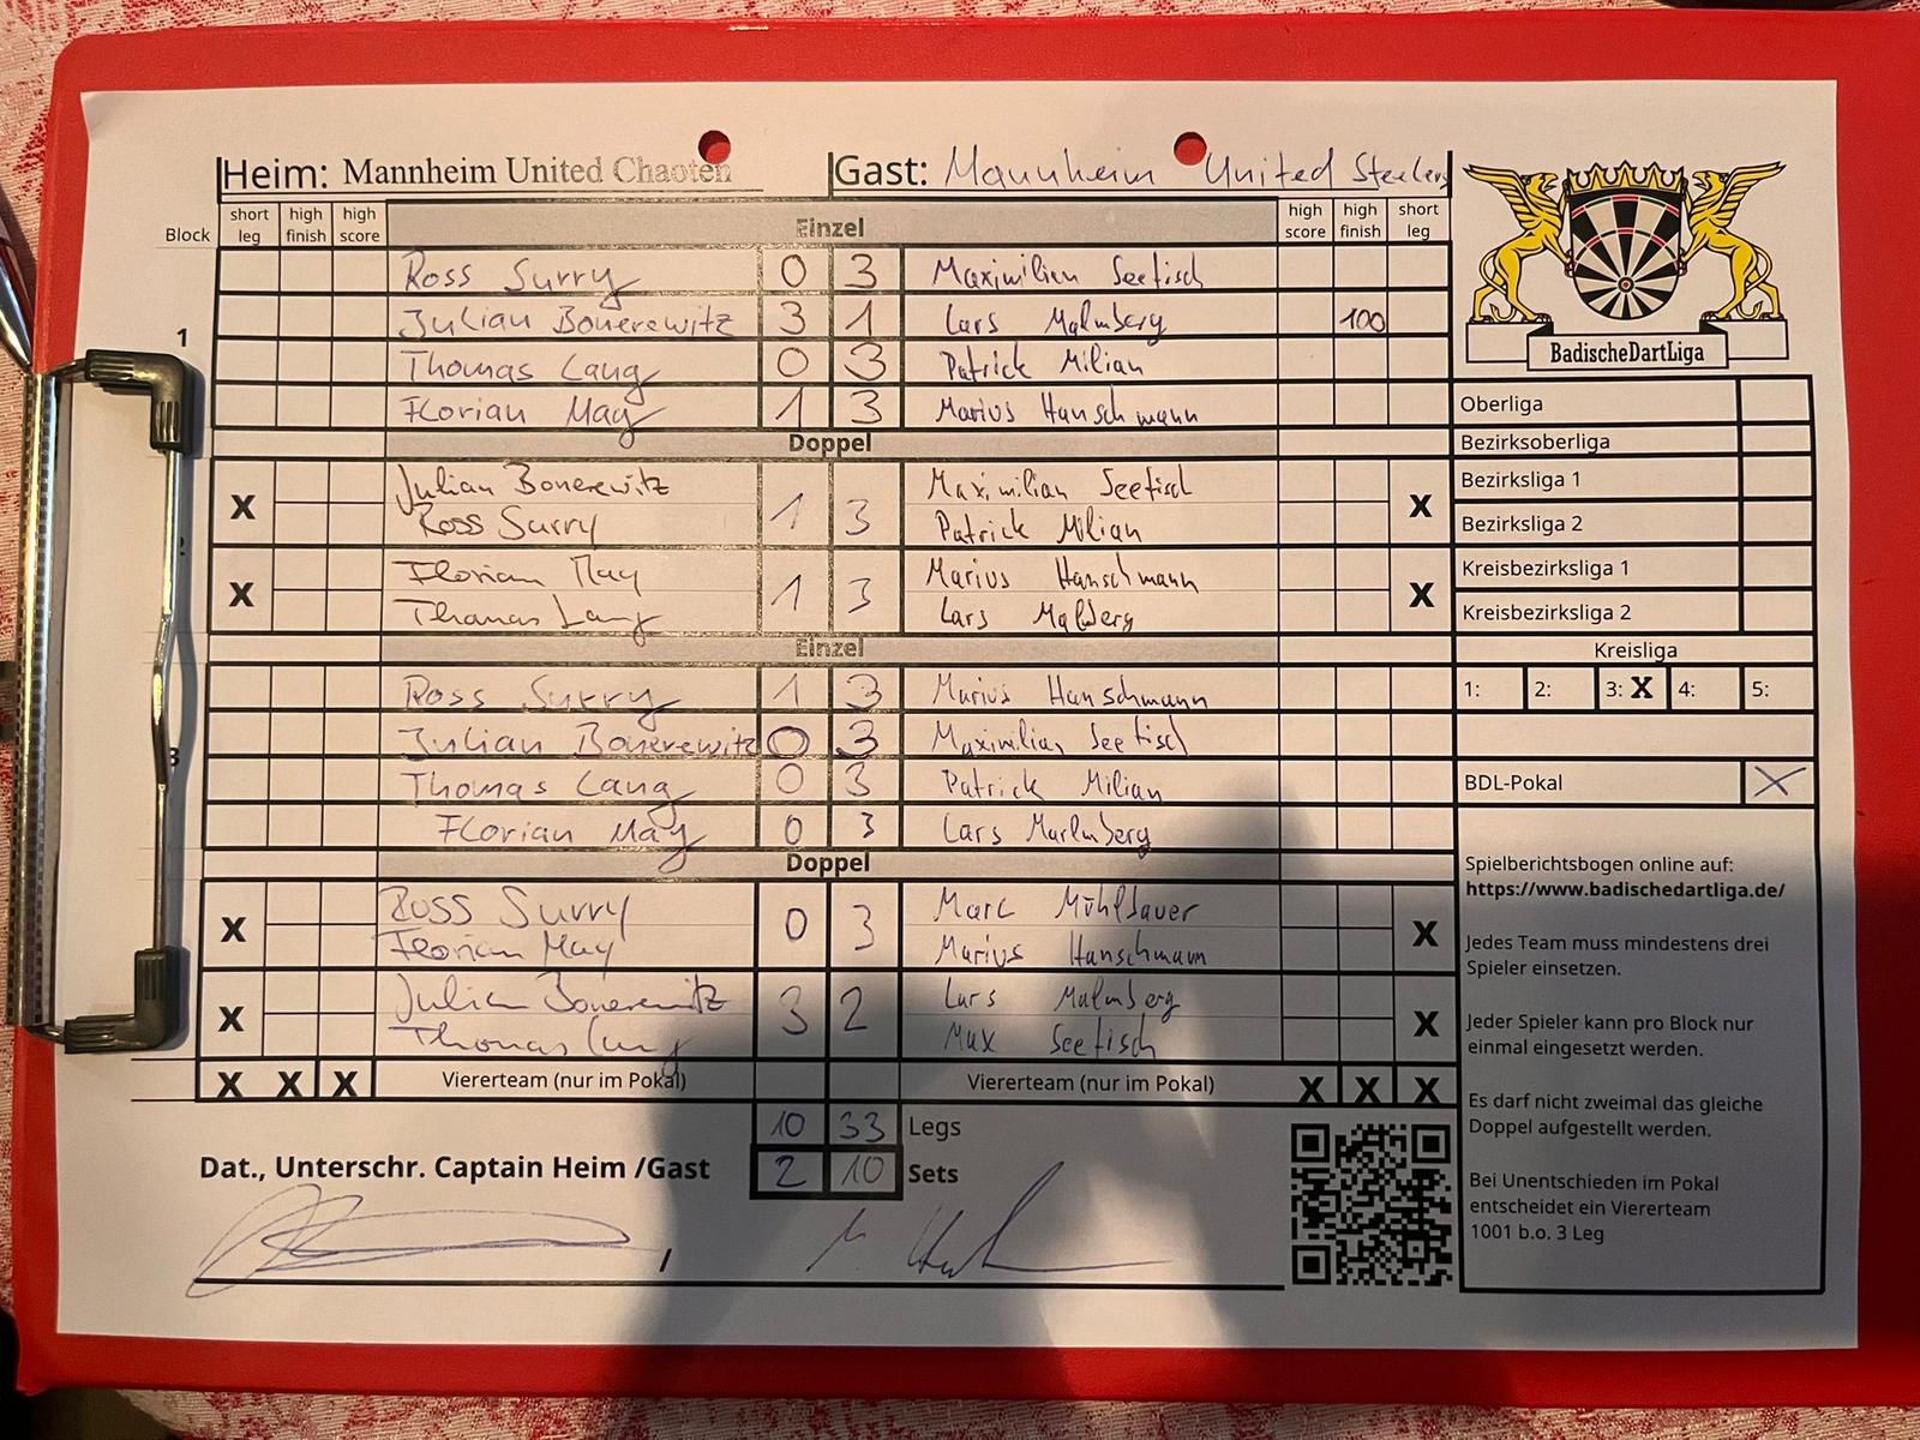 Heim: Mannheim United Chaoten Gast: Mannheim United Steelers
Block short leg high finish high score Einzel high score high finish short leg
Ross Surry 0 3 Maximilien Seefisch
1 Julian Bonerewitz 3 1 Lars Malmberg 100
Thomas Lang 0 3 Patrick Milian
Florian May 1 3 Marius Hanschmann
Doppel
X Julian Bonerewitz 1 3 Maximilian Seefisch X
Ross Surry Patrick Milian
X Florian May 1 3 Marius Hanschmann X
Thomas Lang Lars Malberg
Einzel
Ross Surry 1 3 Marius Hanschmann
3 Julian Bonerewitz 0 3 Maximilian Seefisch
Thomas Lang 0 3 Patrick Milian
Florian May 0 3 Lars Marlmberg
Doppel
X Ross Surry 0 3 Marc Mühlbauer X
Florian May Marius Hanschmann
X Julian Bonerewitz 3 2 Lars Malmberg X
Thomas Lang Max Seefisch
X X X Viererteam (nur im Pokal) Viererteam (nur im Pokal) X X X
10 33 Legs
Dat., Unterschr. Captain Heim /Gast 2 10 Sets
/
BadischeDartLiga
Oberliga
Bezirksoberliga
Bezirksliga 1
Bezirksliga 2
Kreisbezirksliga 1
Kreisbezirksliga 2
Kreisliga
1: 2: 3: X 4: 5:
BDL-Pokal X
Spielberichtsbogen online auf:
https://www.badischedartliga.de/
Jedes Team muss mindestens drei
Spieler einsetzen.
Jeder Spieler kann pro Block nur
einmal eingesetzt werden.
Es darf nicht zweimal das gleiche
Doppel aufgestellt werden.
Bei Unentschieden im Pokal
entscheidet ein Viererteam
1001 b.o. 3 Leg